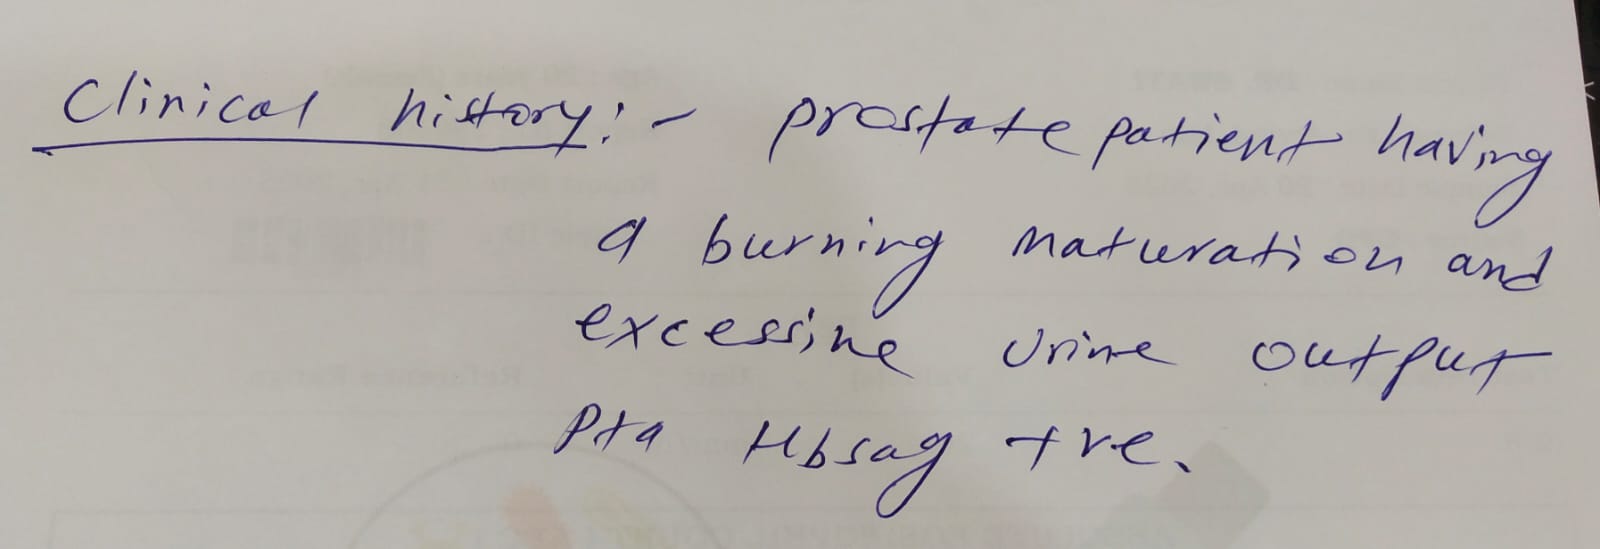 Clinical history:- prostate patient having
a burning maturation and
excessine urine output
Pta Hbsag +ve.